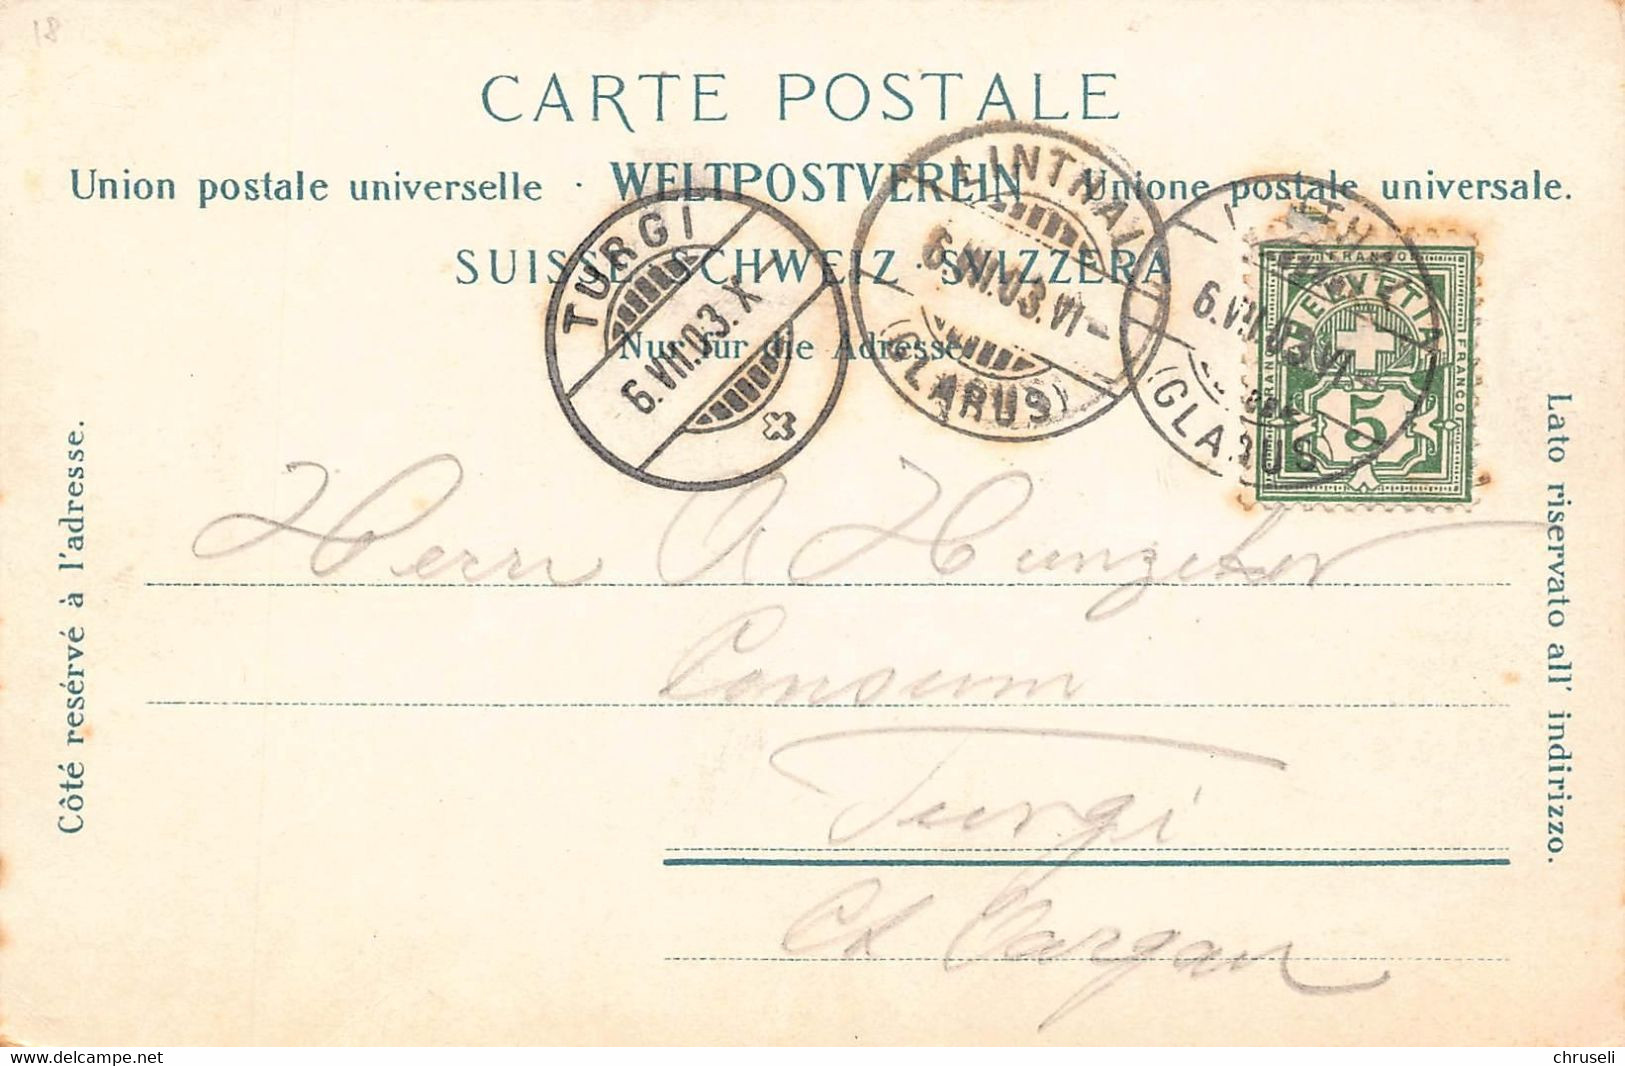 18
CARTE POSTALE
Union postale universelle · WELTPOSTVEREIN · Unione postale universale.
SUISSE · SCHWEIZ · SVIZZERA
Nur für die Adresse
TURGI
6.VIII.03.X
LINTHAL
6.VIII.03.VI-
(GLARUS)
LINTHAL
6.VIII.03.VI-
(GLARUS)
FRANCO
HELVETIA
FRANCO
FRANCO
5
Côté resérvé à l'adresse.
Lato riservato all' indirizzo.
Herrn A Hunziker
Consum
Turgi
Ct Aargau
www.delcampe.net
chruseli